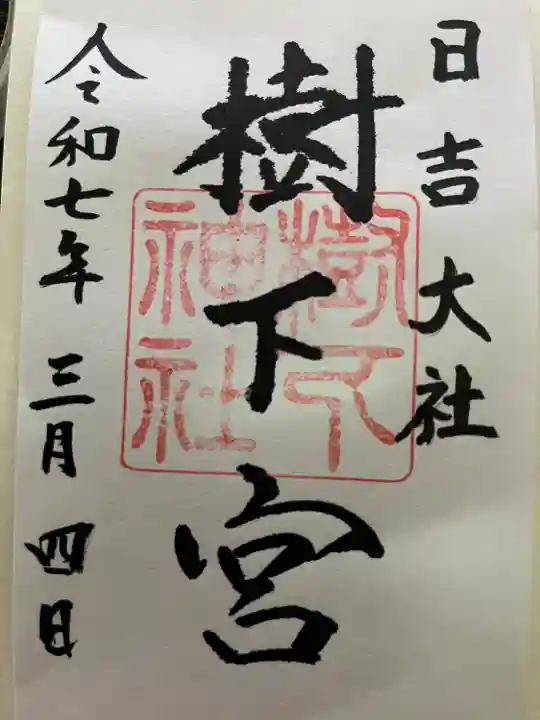 日吉大社
樹下宮
樹下
神社
令和七年 三月 四日